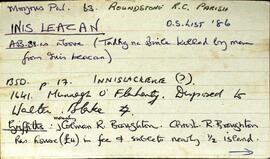 Moyrus Par. 63. ROUNDSTONE R.C. PARISH
INIS LEACAN O.S. LIST '86
as above (Tadhg na Buile killed by men
from Inis Leacan)
BSD. p. 17. INNISLACKENE (?).
1641. Murrogh O'Flaherty. Disposed to
Walter Blake
Griffith: Colman R. Broughton. Christ. R. Broughton
Res. house (£4) in fee & sublets nearly 1/2 island.